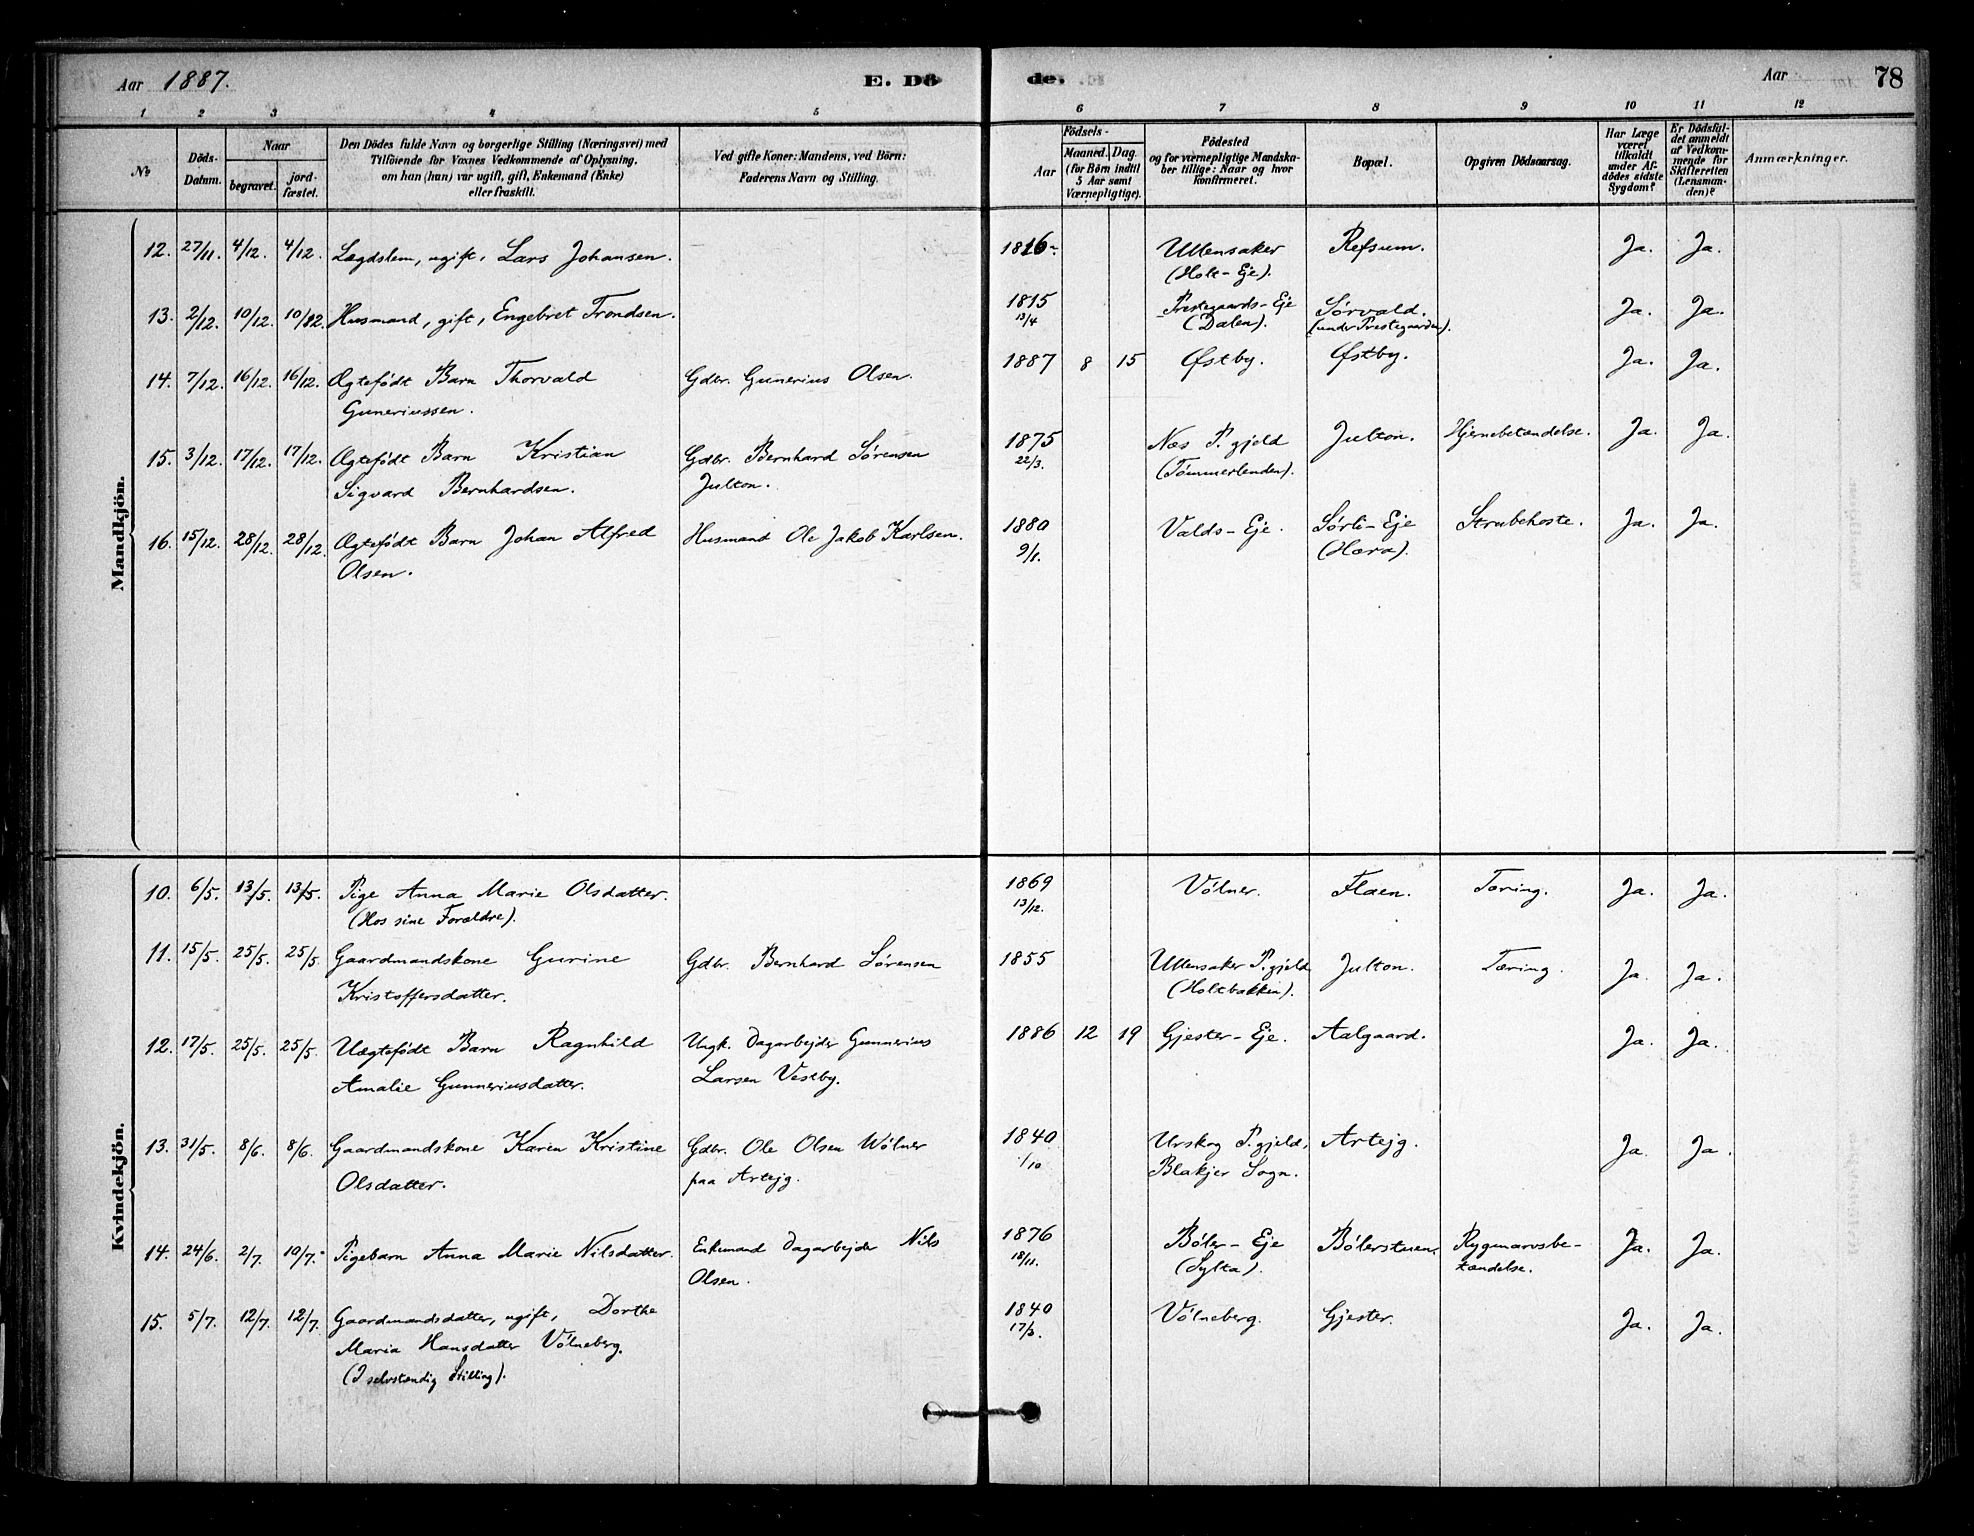 Aar 1887.
E. Dö
de.
Aar
78
1 2 3 4 5 6 7 8 9 10 11 12
No
Döds-
Datum.
Naar
begravet.
jord-
fæstet.
Den Dödes fulde Navn og borgerlige Stilling (Næringsvei) med
Tilföiende for Voxnes Vedkommende af Oplysning,
om han (hun) var ugift, gift, Enkemand (Enke)
eller fraskilt.
Ved gifte Koner: Mandens, ved Börn:
Faderens Navn og Stilling.
Födsels-
Aar
Maaned.
Dag.
(for Börn indtil
5 Aar samt
Værnepligtige).
Födested
og for værnepligtige Mandska-
ber tillige: Naar og hvor
konfirmeret.
Bopæl.
Opgiven Dödsaarsag.
Har Læge
været
tilkaldt
under Af-
dödes sidste
Sygdom?
Er Dödsfal-
det anmeldt
af Vedkom-
mende for
Skifteretten
(Lensman-
den)?
Anmærkninger.
Mandkjön.
12. 27/11. 4/12. 4/12. Lægdslem, ugift, Lars Johansen. 1816 Ullensaker Refsum. Ja. Ja.
(Holt-Eje).
13. 2/12. 10/12. 10/82. Husmand, gift, Engebret Trondsen. 1815 Prestegaards-Eje Sørvald. Ja. Ja.
13/4 (Dalen). (under Prestegaarden).
14. 7/12. 16/12. 16/12. Ægtefödt Barn Thorvald Gdbr. Gunerius Olsen. 1887 8 15 Østby. Østby. Ja. Ja.
Guneriussen.
15. 3/12. 17/12. 17/12. Ægtefödt Barn Kristian Gdbr. Bernhard Sørensen 1875 Næs P. gjeld Julton. Hjernebetændelse. Ja. Ja.
Sigvard Bernhardsen. Julton. 22/3. (Tømmerlenden).
16. 15/12. 28/12. 28/12. Ægtefödt Barn Johan Alfred Husmand Ole Jakob Karlsen. 1880 Valds-Eje. Sørli-Eje Strubehoste. Ja. Ja.
Olsen. 9/1. (Hæra).
Kvindekjön.
10. 6/5. 13/5. 13/5. Pige Anna Marie Olsdatter. 1869 Völner. Flaen. Tæring. Ja. Ja.
(Hos sine Forældre). 13/12.
11. 15/5. 25/5. 25/5. Gaardmandskone Gurine Gdbr. Bernhard Sørensen 1855 Ullensaker P. gjeld Julton. Tæring. Ja. Ja.
Kristoffersdatter. (Holtbakken).
12. 17/5. 25/5. 25/5. Uægtefödt Barn Ragnhild Ungk. Dagarbejder Gunnerius 1886 12 19 Gjester-Eje. Aalgaard. Ja. Ja.
Amalie Gunneriusdatter. Larsen Vestby.
13. 31/5. 8/6. 8/6. Gaardmandskone Karen Kristine Gdbr. Ole Olsen Wölner 1840 Urskog P. gjeld, Artejg. Ja. Ja.
Olsdatter. paa Artejg. 1/10 Blakjer Sogn.
14. 24/6. 2/7. 10/7. Pigebarn Anna Marie Nilsdatter. Enkemand Dagarbejder Nils 1876 Böler-Eje Bölerstuen. Rygmarvsbe- Ja. Ja.
Olsen. 18/11. (Sylta). tændelse.
15. 5/7. 12/7. 12/7. Gaardmandsdatter, ugift, Dorthe 1840 Völneberg. Gjester. Ja. Ja.
Maria Hansdatter Völneberg. 17/3.
(I selvstændig Stilling).